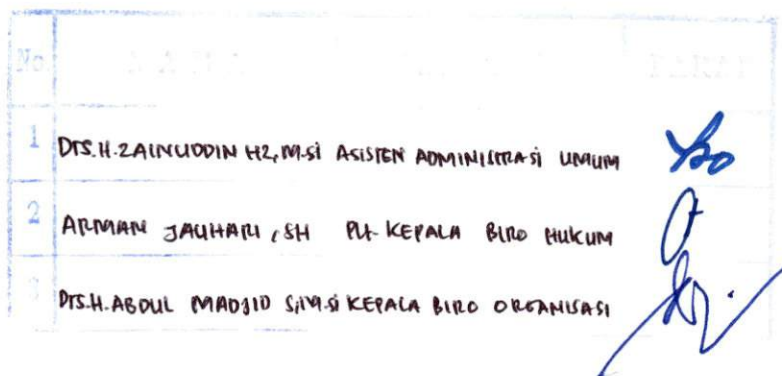 No
PARAF
1 Drs.H.ZAINUDDIN HZ,M.Si ASISTEN ADMINISTRASI UMUM
2 ARMAN JAUHARI, SH Plt. KEPALA BIRO HUKUM
3 Drs.H.ABDUL MADJID S,M.Si KEPALA BIRO ORGANISASI